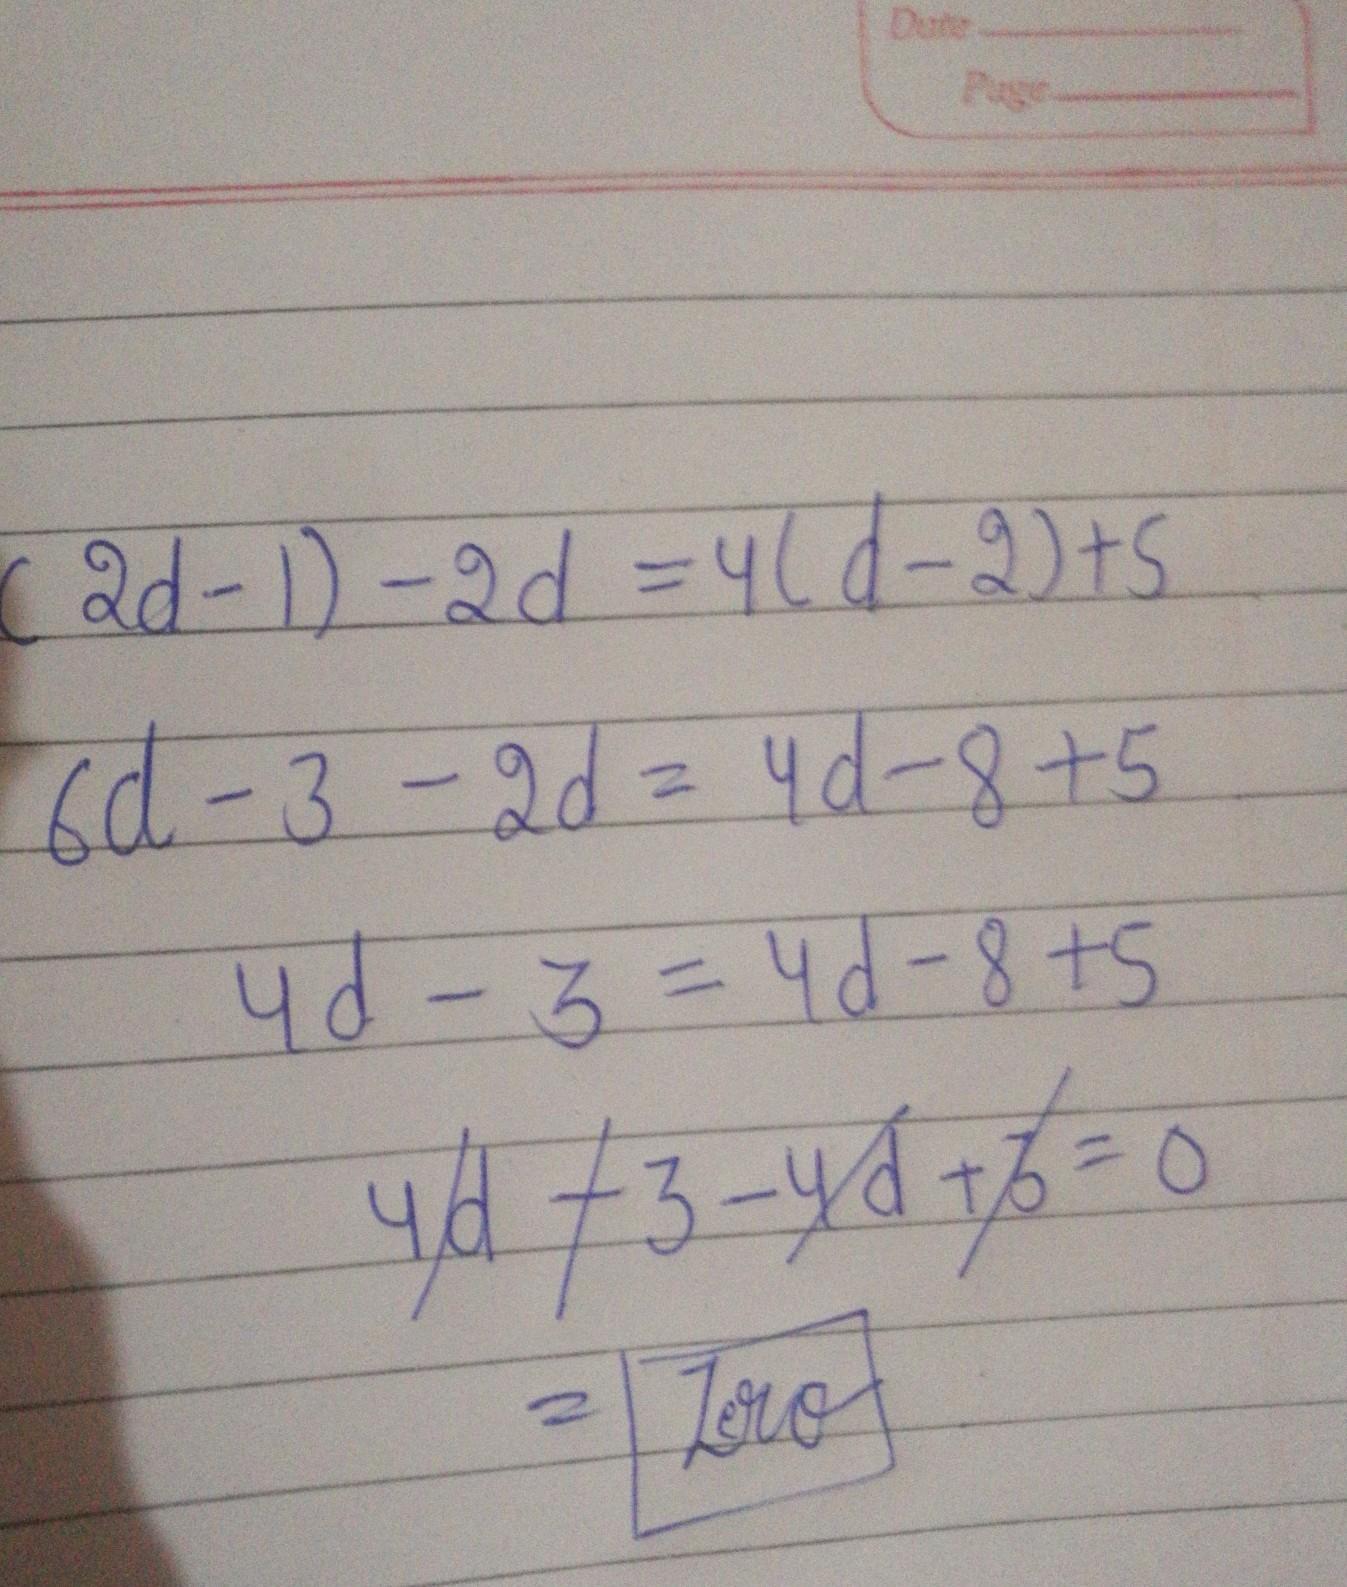 Date
Page
(2d-1) - 2d = 4(d-2)+5
6d - 3 - 2d = 4d - 8 + 5
4d - 3 = 4d - 8 + 5
4d - 3 - 4d + 3 = 0
= Zero